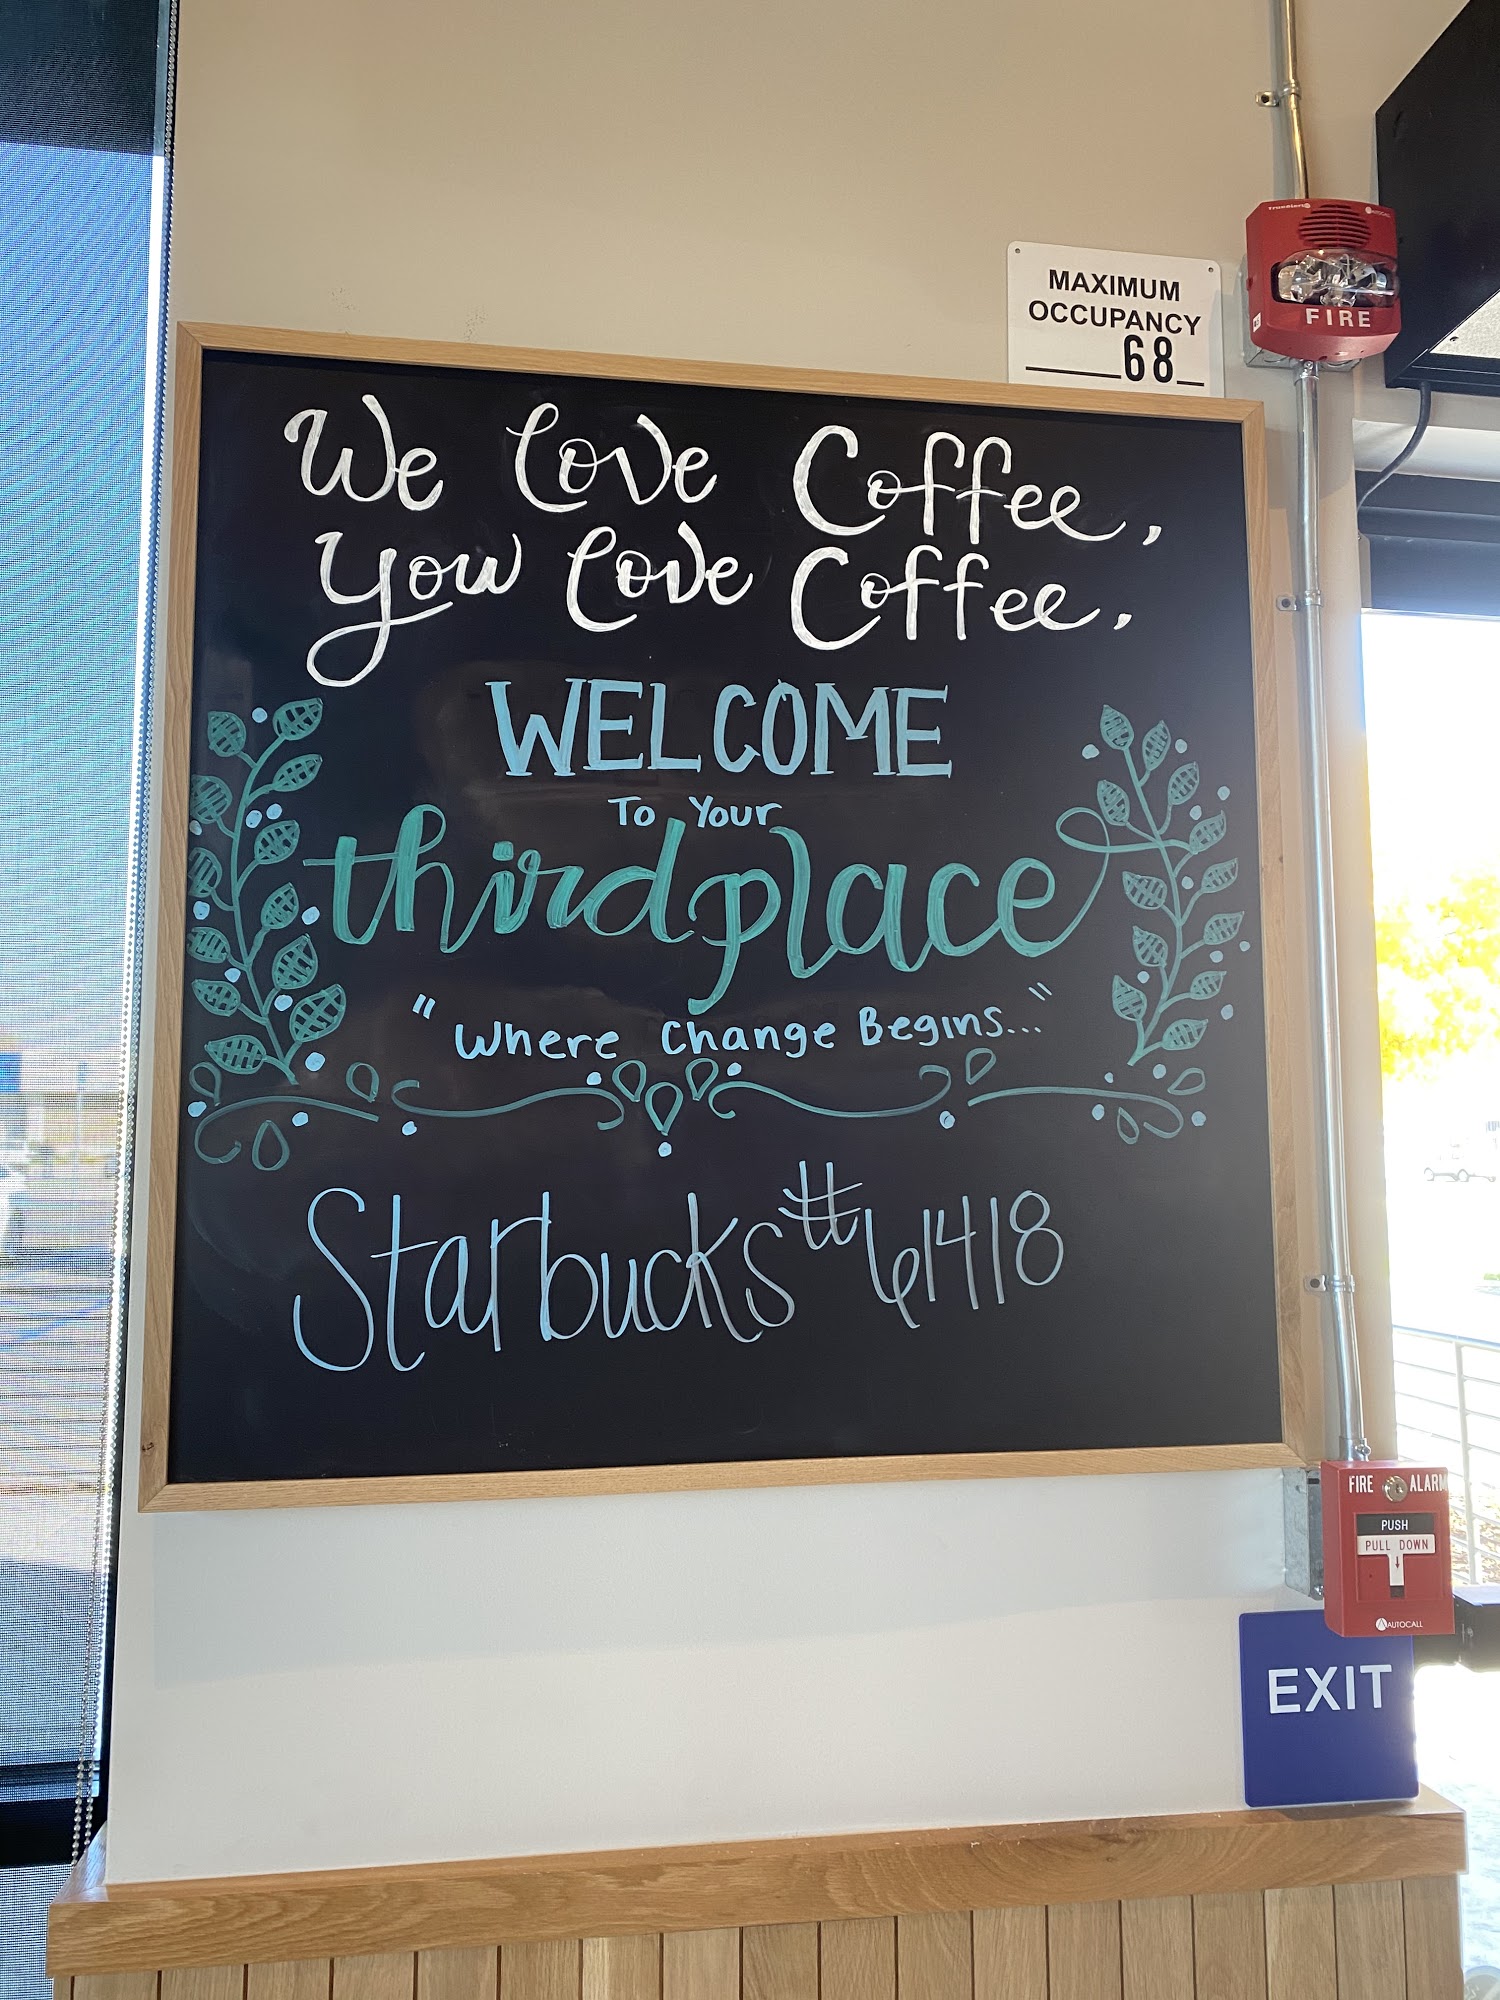 MAXIMUM
OCCUPANCY
68
TrueAlert
AUTOCALL
FIRE
We Love Coffee,
You Love Coffee.
WELCOME
To Your
thirdplace
"Where Change Begins..."
Starbucks #61418
FIRE ALARM
PUSH
PULL DOWN
AUTOCALL
EXIT